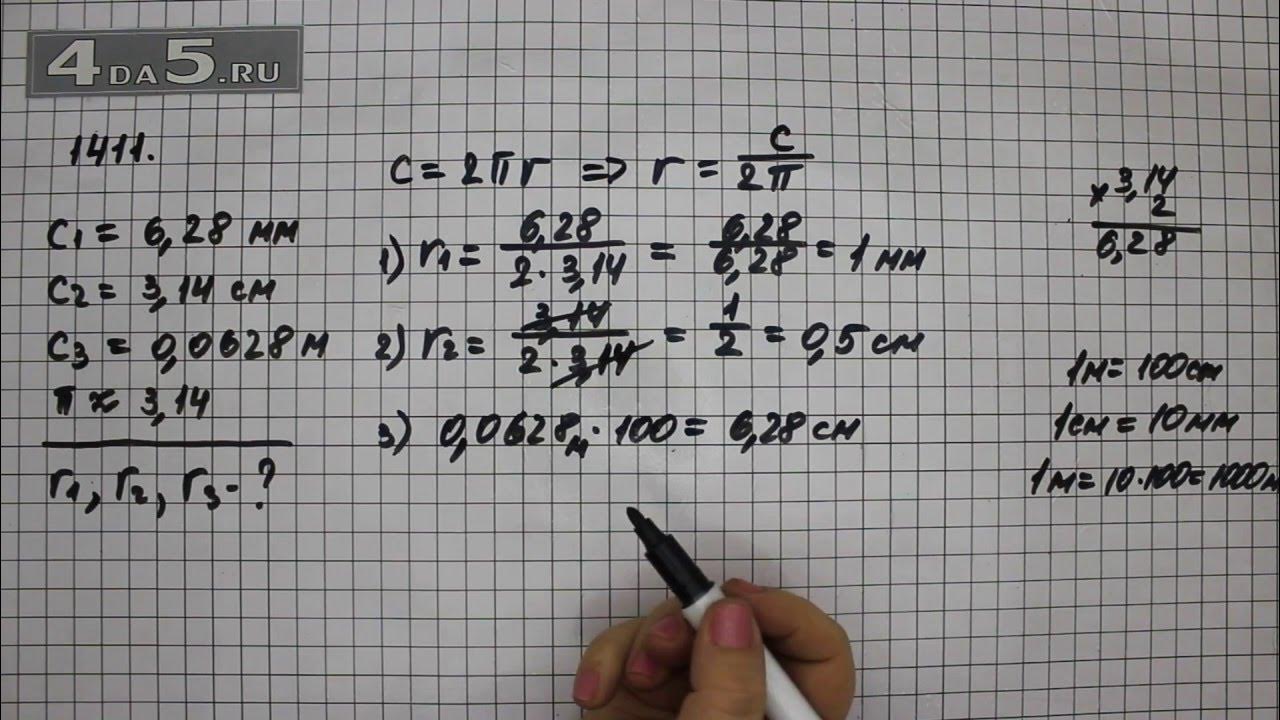 4DA5.RU
1411.
C1 = 6,28 мм
C2 = 3,14 см
C3 = 0,0628 м
π ≈ 3,14
r1, r2, r3 - ?
C = 2πr => r = C/2π
1) r1 = 6,28/2·3,14 = 6,28/6,28 = 1 мм
2) r2 = 3,14/2·3,14 = 1/2 = 0,5 см
3) 0,0628м · 100 = 6,28 см
× 3,14
2
6,28
1м = 100см
1см = 10мм
1м = 10·100 = 1000м